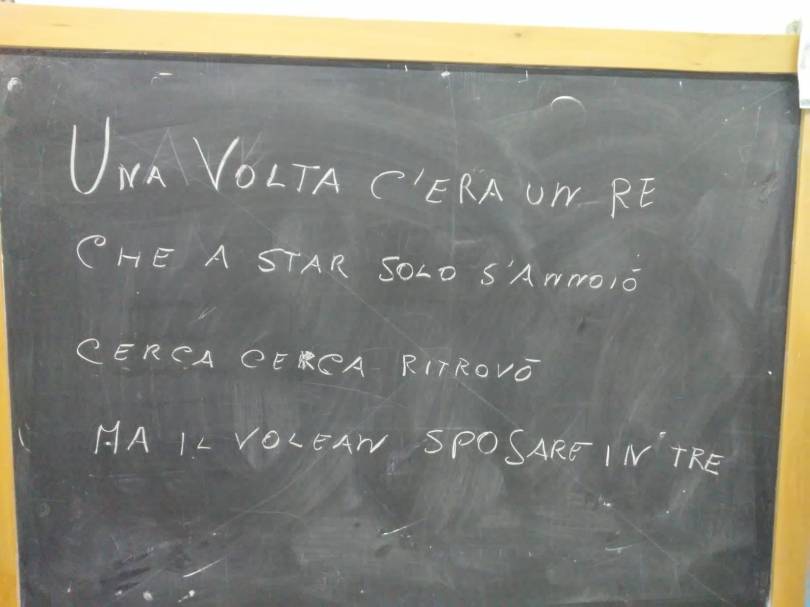 UNA VOLTA C'ERA UN RE
CHE A STAR SOLO S'ANNOIÓ
CERCA CERCA RITROVÓ
MA IL VOLEAN SPOSARE IN TRE